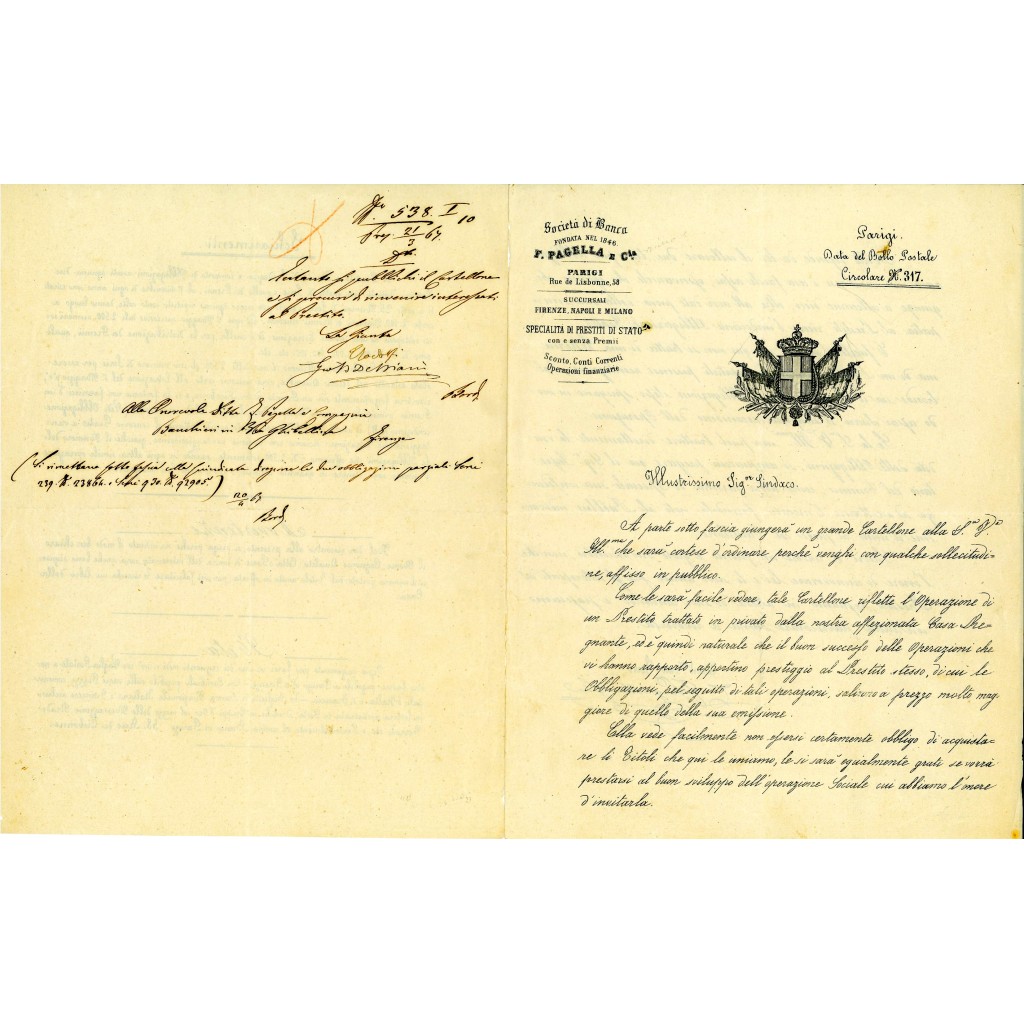 N. 538. I 10
21
3 67
Intanto si pubblichi il Cartellone
e si procuri di rinvenire interessati
al Prestito
La Giunta
Bord.
Alla Onorevole Ditta F. Pagella e Compagni
Banchieri in Via Ghibellina
Firenze
(Si rimettono sotto fascia alla le due obbligazioni parziali Serie
239. N. 23864. e Serie 930. N. 92905)
20
4 67
Bord.
Società di Banca
FONDATA NEL 1846
F. PAGELLA E C.ia
PARIGI
Rue de Lisbonne, 58
SUCCURSALI
FIRENZE, NAPOLI E MILANO
SPECIALITÀ DI PRESTITI DI STATO
con e senza Premii
Sconto, Conti Correnti
Operazioni finanziarie
Parigi.
Data del Bollo Postale
Circolare N. 317.
Illustrissimo Sig.or Sindaco.
A parte sotto fascia giungerà un grande Cartellone alla S.a V.a
Ill.ma che sarà cortese d'ordinare perchè venghi con qualche sollecitudi-
ne, affisso in pubblico.
Come le sarà facile vedere, tale Cartellone riflette l'Operazione di
un Prestito trattato in privato dalla nostra affezionata Casa Re-
gnante, ed è quindi naturale che il buon successo delle Operazioni che
vi hanno rapporto, apportino prestiggio al Prestito stesso, di cui le
Obbligazioni, pel seguito di tali operazioni, salirono a prezzo molto mag
giore di quello della sua emissione.
Ella vede facilmente non esservi certamente obbligo di acquista-
re li Titoli che qui le uniamo, le si sarà egualmente grati se vorrà
prestarsi al buon sviluppo dell'operazione Sociale cui abbiamo l'onore
d'invitarla.